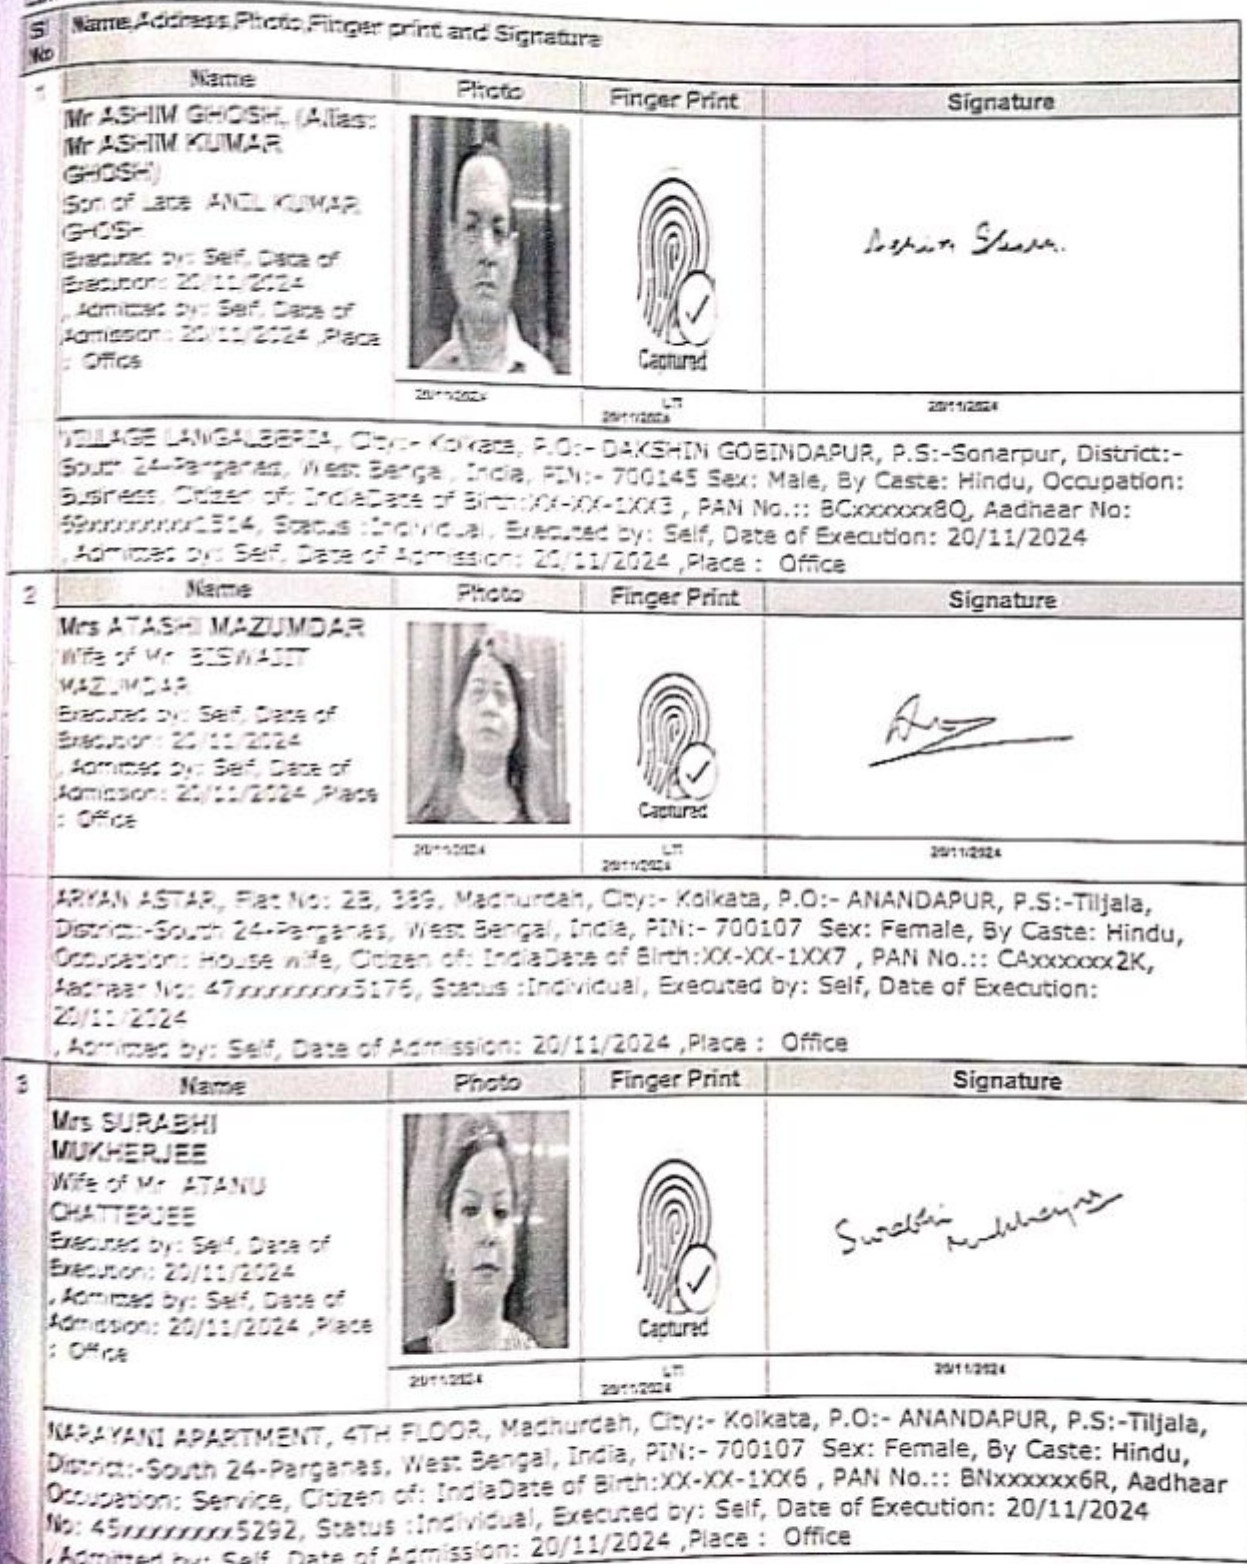 Sl Name,Address,Photo,Finger print and Signature
No
1 Name Photo Finger Print Signature
Mr ASHIM GHOSH, (Alias:
Mr ASHIM KUMAR
GHOSH)
Son of Late ANIL KUMAR
GHOSH
Executed by: Self, Date of
Execution: 20/11/2024
, Admitted by: Self, Date of
Admission: 20/11/2024 ,Place
: Office
Captured
20/11/2024 LTI 20/11/2024
20/11/2024
VILLAGE LANGALBERIA, City:- Kolkata, P.O:- DAKSHIN GOBINDAPUR, P.S:-Sonarpur, District:-
South 24-Parganas, West Bengal, India, PIN:- 700145 Sex: Male, By Caste: Hindu, Occupation:
Business, Citizen of: IndiaDate of Birth:XX-XX-1XX3 , PAN No.:: BCxxxxxx8Q, Aadhaar No:
69xxxxxxxx1514, Status :Individual, Executed by: Self, Date of Execution: 20/11/2024
, Admitted by: Self, Date of Admission: 20/11/2024 ,Place : Office
2 Name Photo Finger Print Signature
Mrs ATASHI MAZUMDAR
Wife of Mr BISWAJIT
MAZUMDAR
Executed by: Self, Date of
Execution: 20/11/2024
, Admitted by: Self, Date of
Admission: 20/11/2024 ,Place
: Office
Captured
20/11/2024 LTI 20/11/2024
20/11/2024
ARYAN ASTAR, Flat No: 2B, 389, Madhurdah, City:- Kolkata, P.O:- ANANDAPUR, P.S:-Tiljala,
District:-South 24-Parganas, West Bengal, India, PIN:- 700107 Sex: Female, By Caste: Hindu,
Occupation: House wife, Citizen of: IndiaDate of Birth:XX-XX-1XX7 , PAN No.:: CAxxxxxx2K,
Aadhaar No: 47xxxxxxxx5176, Status :Individual, Executed by: Self, Date of Execution:
20/11/2024
, Admitted by: Self, Date of Admission: 20/11/2024 ,Place : Office
3 Name Photo Finger Print Signature
Mrs SURABHI
MUKHERJEE
Wife of Mr ATANU
CHATTERJEE
Executed by: Self, Date of
Execution: 20/11/2024
, Admitted by: Self, Date of
Admission: 20/11/2024 ,Place
: Office
Surabhi
Mukherjee
Captured
20/11/2024 LTI 20/11/2024
20/11/2024
NARAYANI APARTMENT, 4TH FLOOR, Madhurdah, City:- Kolkata, P.O:- ANANDAPUR, P.S:-Tiljala,
District:-South 24-Parganas, West Bengal, India, PIN:- 700107 Sex: Female, By Caste: Hindu,
Occupation: Service, Citizen of: IndiaDate of Birth:XX-XX-1XX6 , PAN No.:: BNxxxxxx6R, Aadhaar
No: 45xxxxxxxx5292, Status :Individual, Executed by: Self, Date of Execution: 20/11/2024
, Admitted by: Self, Date of Admission: 20/11/2024 ,Place : Office